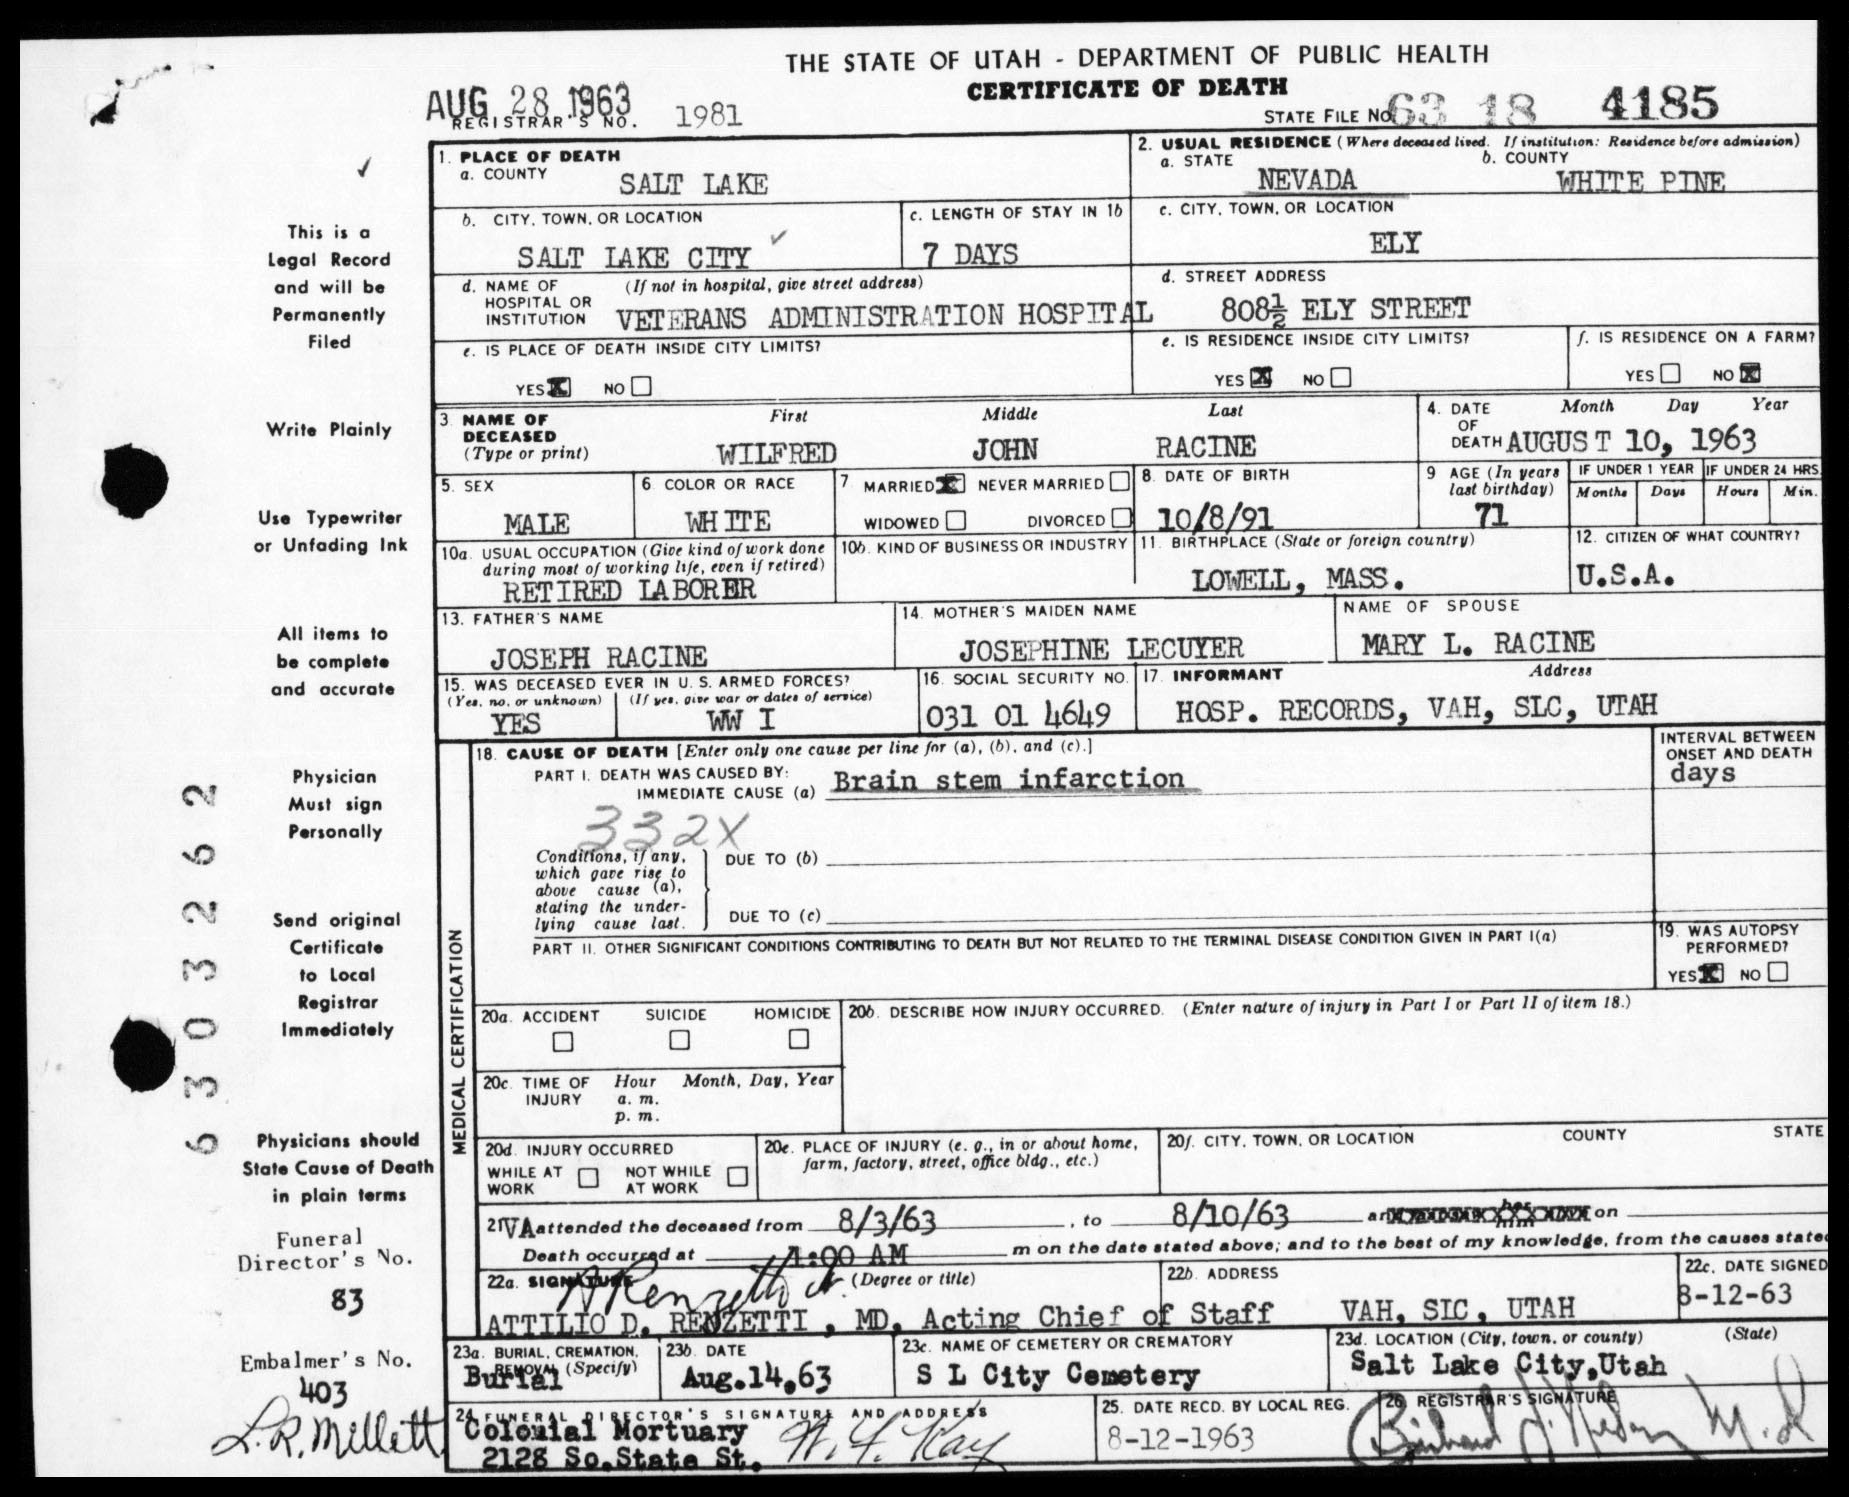 THE STATE OF UTAH - DEPARTMENT OF PUBLIC HEALTH
CERTIFICATE OF DEATH
AUG 28 1963
REGISTRAR'S NO. 1981
STATE FILE NO. 63 18 4185
1. PLACE OF DEATH
a. COUNTY SALT LAKE
2. USUAL RESIDENCE (Where deceased lived. If institution: Residence before admission)
a. STATE NEVADA b. COUNTY WHITE PINE
b. CITY, TOWN, OR LOCATION SALT LAKE CITY
c. LENGTH OF STAY IN 1b 7 DAYS
c. CITY, TOWN, OR LOCATION ELY
d. NAME OF HOSPITAL OR INSTITUTION (If not in hospital, give street address) VETERANS ADMINISTRATION HOSPITAL
d. STREET ADDRESS 808½ ELY STREET
e. IS PLACE OF DEATH INSIDE CITY LIMITS?
YES X NO
e. IS RESIDENCE INSIDE CITY LIMITS?
YES X NO
f. IS RESIDENCE ON A FARM?
YES NO X
3. NAME OF DECEASED (Type or print)
First Middle Last
WILFRED JOHN RACINE
4. DATE OF DEATH Month Day Year
AUGUST 10, 1963
5. SEX MALE
6. COLOR OR RACE WHITE
7. MARRIED X NEVER MARRIED
WIDOWED DIVORCED
8. DATE OF BIRTH 10/8/91
9 AGE (In years last birthday) 71
IF UNDER 1 YEAR Months Days
IF UNDER 24 HRS. Hours Min.
10a. USUAL OCCUPATION (Give kind of work done during most of working life, even if retired)
RETIRED LABORER
10b. KIND OF BUSINESS OR INDUSTRY
11. BIRTHPLACE (State or foreign country)
LOWELL, MASS.
12. CITIZEN OF WHAT COUNTRY?
U.S.A.
13. FATHER'S NAME
JOSEPH RACINE
14. MOTHER'S MAIDEN NAME
JOSEPHINE LECUYER
NAME OF SPOUSE
MARY L. RACINE
15. WAS DECEASED EVER IN U. S. ARMED FORCES?
(Yes, no, or unknown) (If yes, give war or dates of service)
YES WW I
16. SOCIAL SECURITY NO.
031 01 4649
17. INFORMANT Address
HOSP. RECORDS, VAH, SLC, UTAH
MEDICAL CERTIFICATION
18. CAUSE OF DEATH [Enter only one cause per line for (a), (b), and (c).]
PART I. DEATH WAS CAUSED BY:
IMMEDIATE CAUSE (a) Brain stem infarction
INTERVAL BETWEEN ONSET AND DEATH
days
332X
Conditions, if any, which gave rise to above cause (a), stating the underlying cause last.
DUE TO (b)
DUE TO (c)
PART II. OTHER SIGNIFICANT CONDITIONS CONTRIBUTING TO DEATH BUT NOT RELATED TO THE TERMINAL DISEASE CONDITION GIVEN IN PART I(a)
19. WAS AUTOPSY PERFORMED?
YES X NO
20a. ACCIDENT SUICIDE HOMICIDE
20b. DESCRIBE HOW INJURY OCCURRED. (Enter nature of injury in Part I or Part II of item 18.)
20c. TIME OF INJURY Hour Month, Day, Year
a. m.
p. m.
20d. INJURY OCCURRED
WHILE AT WORK NOT WHILE AT WORK
20e. PLACE OF INJURY (e. g., in or about home, farm, factory, street, office bldg., etc.)
20f. CITY, TOWN, OR LOCATION COUNTY STATE
21 VA attended the deceased from 8/3/63, to 8/10/63 on
Death occurred at 1:00 AM m on the date stated above; and to the best of my knowledge, from the causes stated
22a. SIGNATURE (Degree or title)
A Renzetti Jr.
ATTILIO D. RENZETTI, MD, Acting Chief of Staff
22b. ADDRESS
VAH, SLC, UTAH
22c. DATE SIGNED
8-12-63
23a. BURIAL, CREMATION, REMOVAL (Specify)
Burial
23b. DATE
Aug.14,63
23c. NAME OF CEMETERY OR CREMATORY
S L City Cemetery
23d. LOCATION (City, town, or county) (State)
Salt Lake City,Utah
24. FUNERAL DIRECTOR'S SIGNATURE AND ADDRESS
Colonial Mortuary
2128 So.State St.
W. F. Kay
25. DATE RECD. BY LOCAL REG.
8-12-1963
26. REGISTRAR'S SIGNATURE
M.D.
This is a
Legal Record
and will be
Permanently
Filed
Write Plainly
Use Typewriter
or Unfading Ink
All items to
be complete
and accurate
Physician
Must sign
Personally
Send original
Certificate
to Local
Registrar
Immediately
Physicians should
State Cause of Death
in plain terms
Funeral
Director's No.
83
Embalmer's No.
403
L.R. Millett
6303262